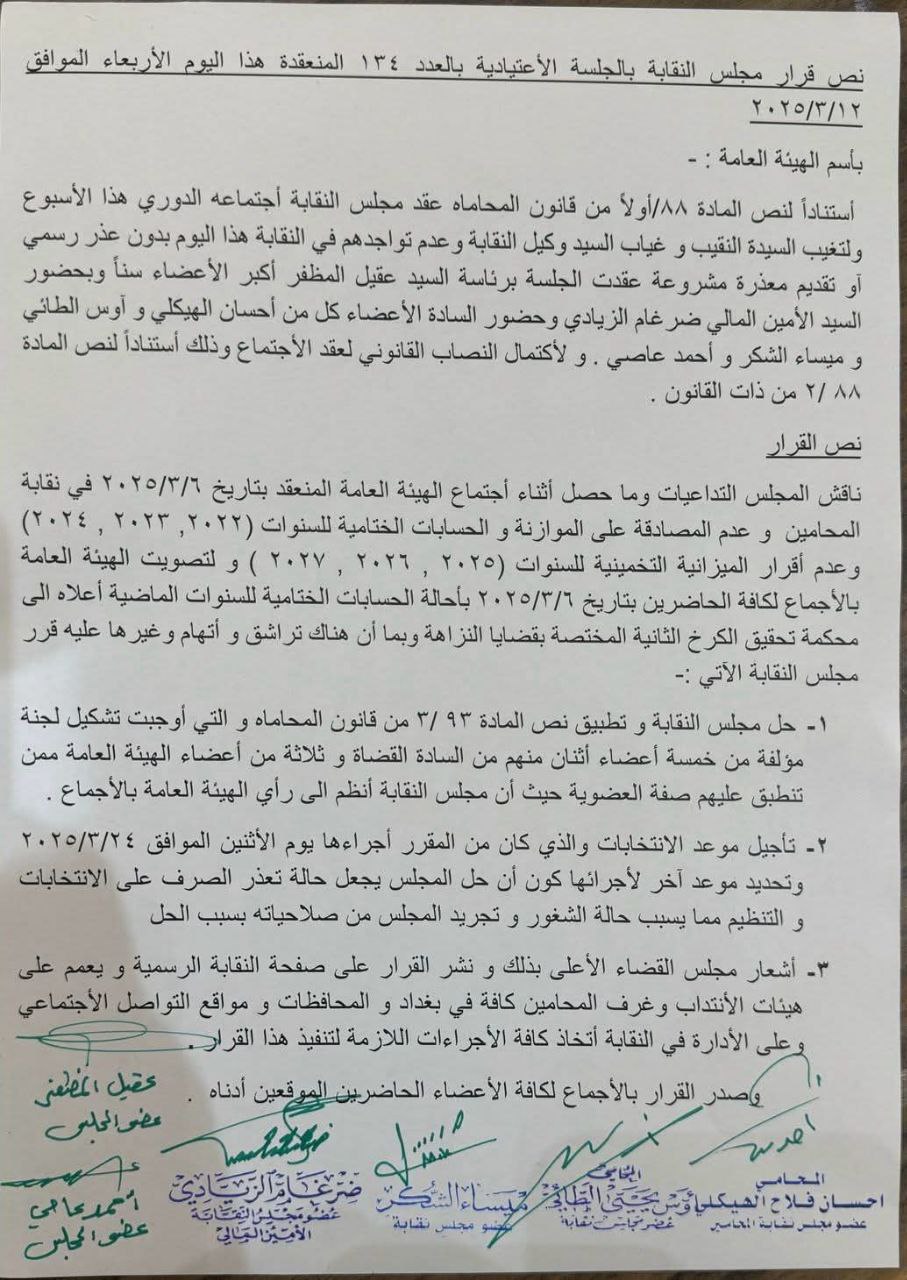 نص قرار مجلس النقابة بالجلسة الأعتيادية بالعدد ١٣٤ المنعقدة هذا اليوم الأربعاء الموافق
٢٠٢٥/٣/١٢
بأسم الهيئة العامة : -
أستناداً لنص المادة ٨٨/أولاً من قانون المحاماه عقد مجلس النقابة أجتماعه الدوري هذا الأسبوع
ولتغيب السيدة النقيب و غياب السيد وكيل النقابة وعدم تواجدهم في النقابة هذا اليوم بدون عذر رسمي
آو تقديم معذرة مشروعة عقدت الجلسة برئاسة السيد عقيل المظفر أكبر الأعضاء سناً وبحضور
السيد الأمين المالي ضرغام الزيادي وحضور السادة الأعضاء كل من أحسان الهيكلي و آوس الطائي
و ميساء الشكر و أحمد عاصي . و لأكتمال النصاب القانوني لعقد الأجتماع وذلك أستناداً لنص المادة
٨٨ /٢ من ذات القانون .
نص القرار
ناقش المجلس التداعيات وما حصل أثناء أجتماع الهيئة العامة المنعقد بتاريخ ٢٠٢٥/٣/٦ في نقابة
المحامين و عدم المصادقة على الموازنة و الحسابات الختامية للسنوات (٢٠٢٢, ٢٠٢٣ , ٢٠٢٤)
وعدم أقرار الميزانية التخمينية للسنوات (٢٠٢٥ , ٢٠٢٦ , ٢٠٢٧ ) و لتصويت الهيئة العامة
بالأجماع لكافة الحاضرين بتاريخ ٢٠٢٥/٣/٦ بأحالة الحسابات الختامية للسنوات الماضية أعلاه الى
محكمة تحقيق الكرخ الثانية المختصة بقضايا النزاهة وبما أن هناك تراشق و أتهام وغيرها عليه قرر
مجلس النقابة الآتي :-
١- حل مجلس النقابة و تطبيق نص المادة ٩٣ /٣ من قانون المحاماه و التي أوجبت تشكيل لجنة
مؤلفة من خمسة أعضاء أثنان منهم من السادة القضاة و ثلاثة من أعضاء الهيئة العامة ممن
تنطبق عليهم صفة العضوية حيث أن مجلس النقابة أنظم الى رأي الهيئة العامة بالأجماع .
٢- تأجيل موعد الانتخابات والذي كان من المقرر أجراءها يوم الأثنين الموافق ٢٠٢٥/٣/٢٤
وتحديد موعد آخر لأجرائها كون أن حل المجلس يجعل حالة تعذر الصرف على الانتخابات
و التنظيم مما يسبب حالة الشغور و تجريد المجلس من صلاحياته بسبب الحل
٣- أشعار مجلس القضاء الأعلى بذلك و نشر القرار على صفحة النقابة الرسمية و يعمم على
هيئات الأنتداب وغرف المحامين كافة في بغداد و المحافظات و مواقع التواصل الأجتماعي
وعلى الأدارة في النقابة أتخاذ كافة الأجراءات اللازمة لتنفيذ هذا القرار .
وصدر القرار بالأجماع لكافة الأعضاء الحاضرين الموقعين أدناه .
عقيل المظفر
عضو المجلس
المحامي
احسان فلاح الهيكلي
عضو مجلس نقابة المحامين
المحامي
أوس يحيى الطائي
عضو مجلس نقابة
ميساء الشكر
عضو مجلس نقابة
ضرغام الزيادي
عضو مجلس النقابة
الأمين المالي
أحمد عاصي
عضو المجلس